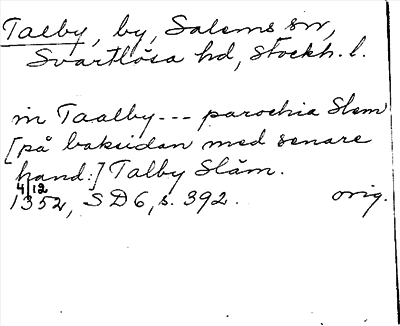 Talby, by, Salems sn,
Svartlösa hd, Stockh. l.
in Taalby --- parochia Slem
[på baksidan med senare
hand:] Talby Släm.
4/12
1352, SD 6, s. 392. orig.